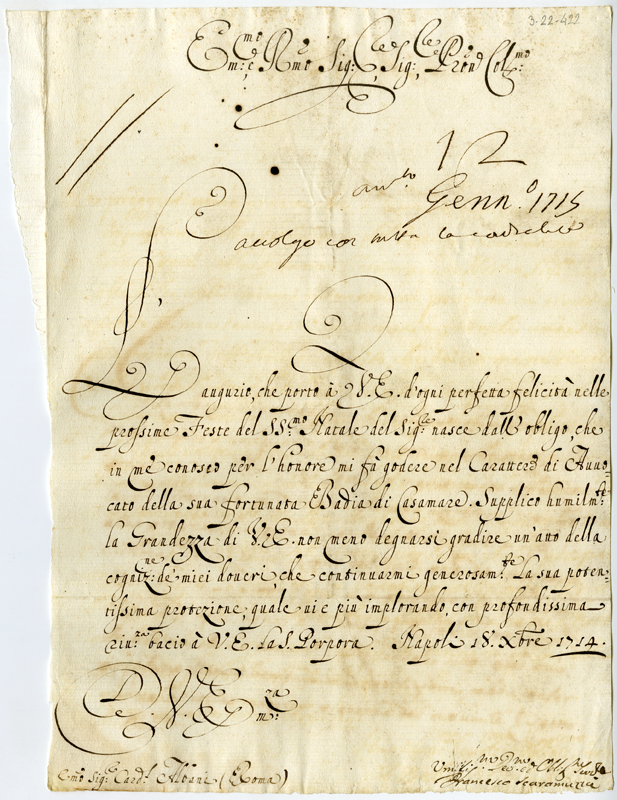 3-22-422
E.mo e R.mo Sig:re, Sig:re Pron Col.mo
12
Genn.o 1715
accolgo con
L'augurio, che porto à V.E. d'ogni perfetta felicità nelle
prossime Feste del SS.mo Natale del Sig:re nasce dall'obligo, che
in me conosco per l'honore mi fà godere nel Carattere di Avvo-
cato della sua fortunata Badia di Casamare. Supplico humilm:te
la Grandezza di V.E. non meno degnarsi gradire un'atto della
cogniz:ne de miei doveri, che continuarmi generosam:te la sua poten-
tissima protezione, quale vie più implorando, con profondissima
riv:za bacio à V.E. la S. Porpora. Napoli 18. Xbre 1714.
D. V. E. R.ma
E.mo Sig:re Card:l Albani (Roma)
Umiliss.mo Dev.mo ed Obl.mo Ser.re
Francesco Scaramuzza